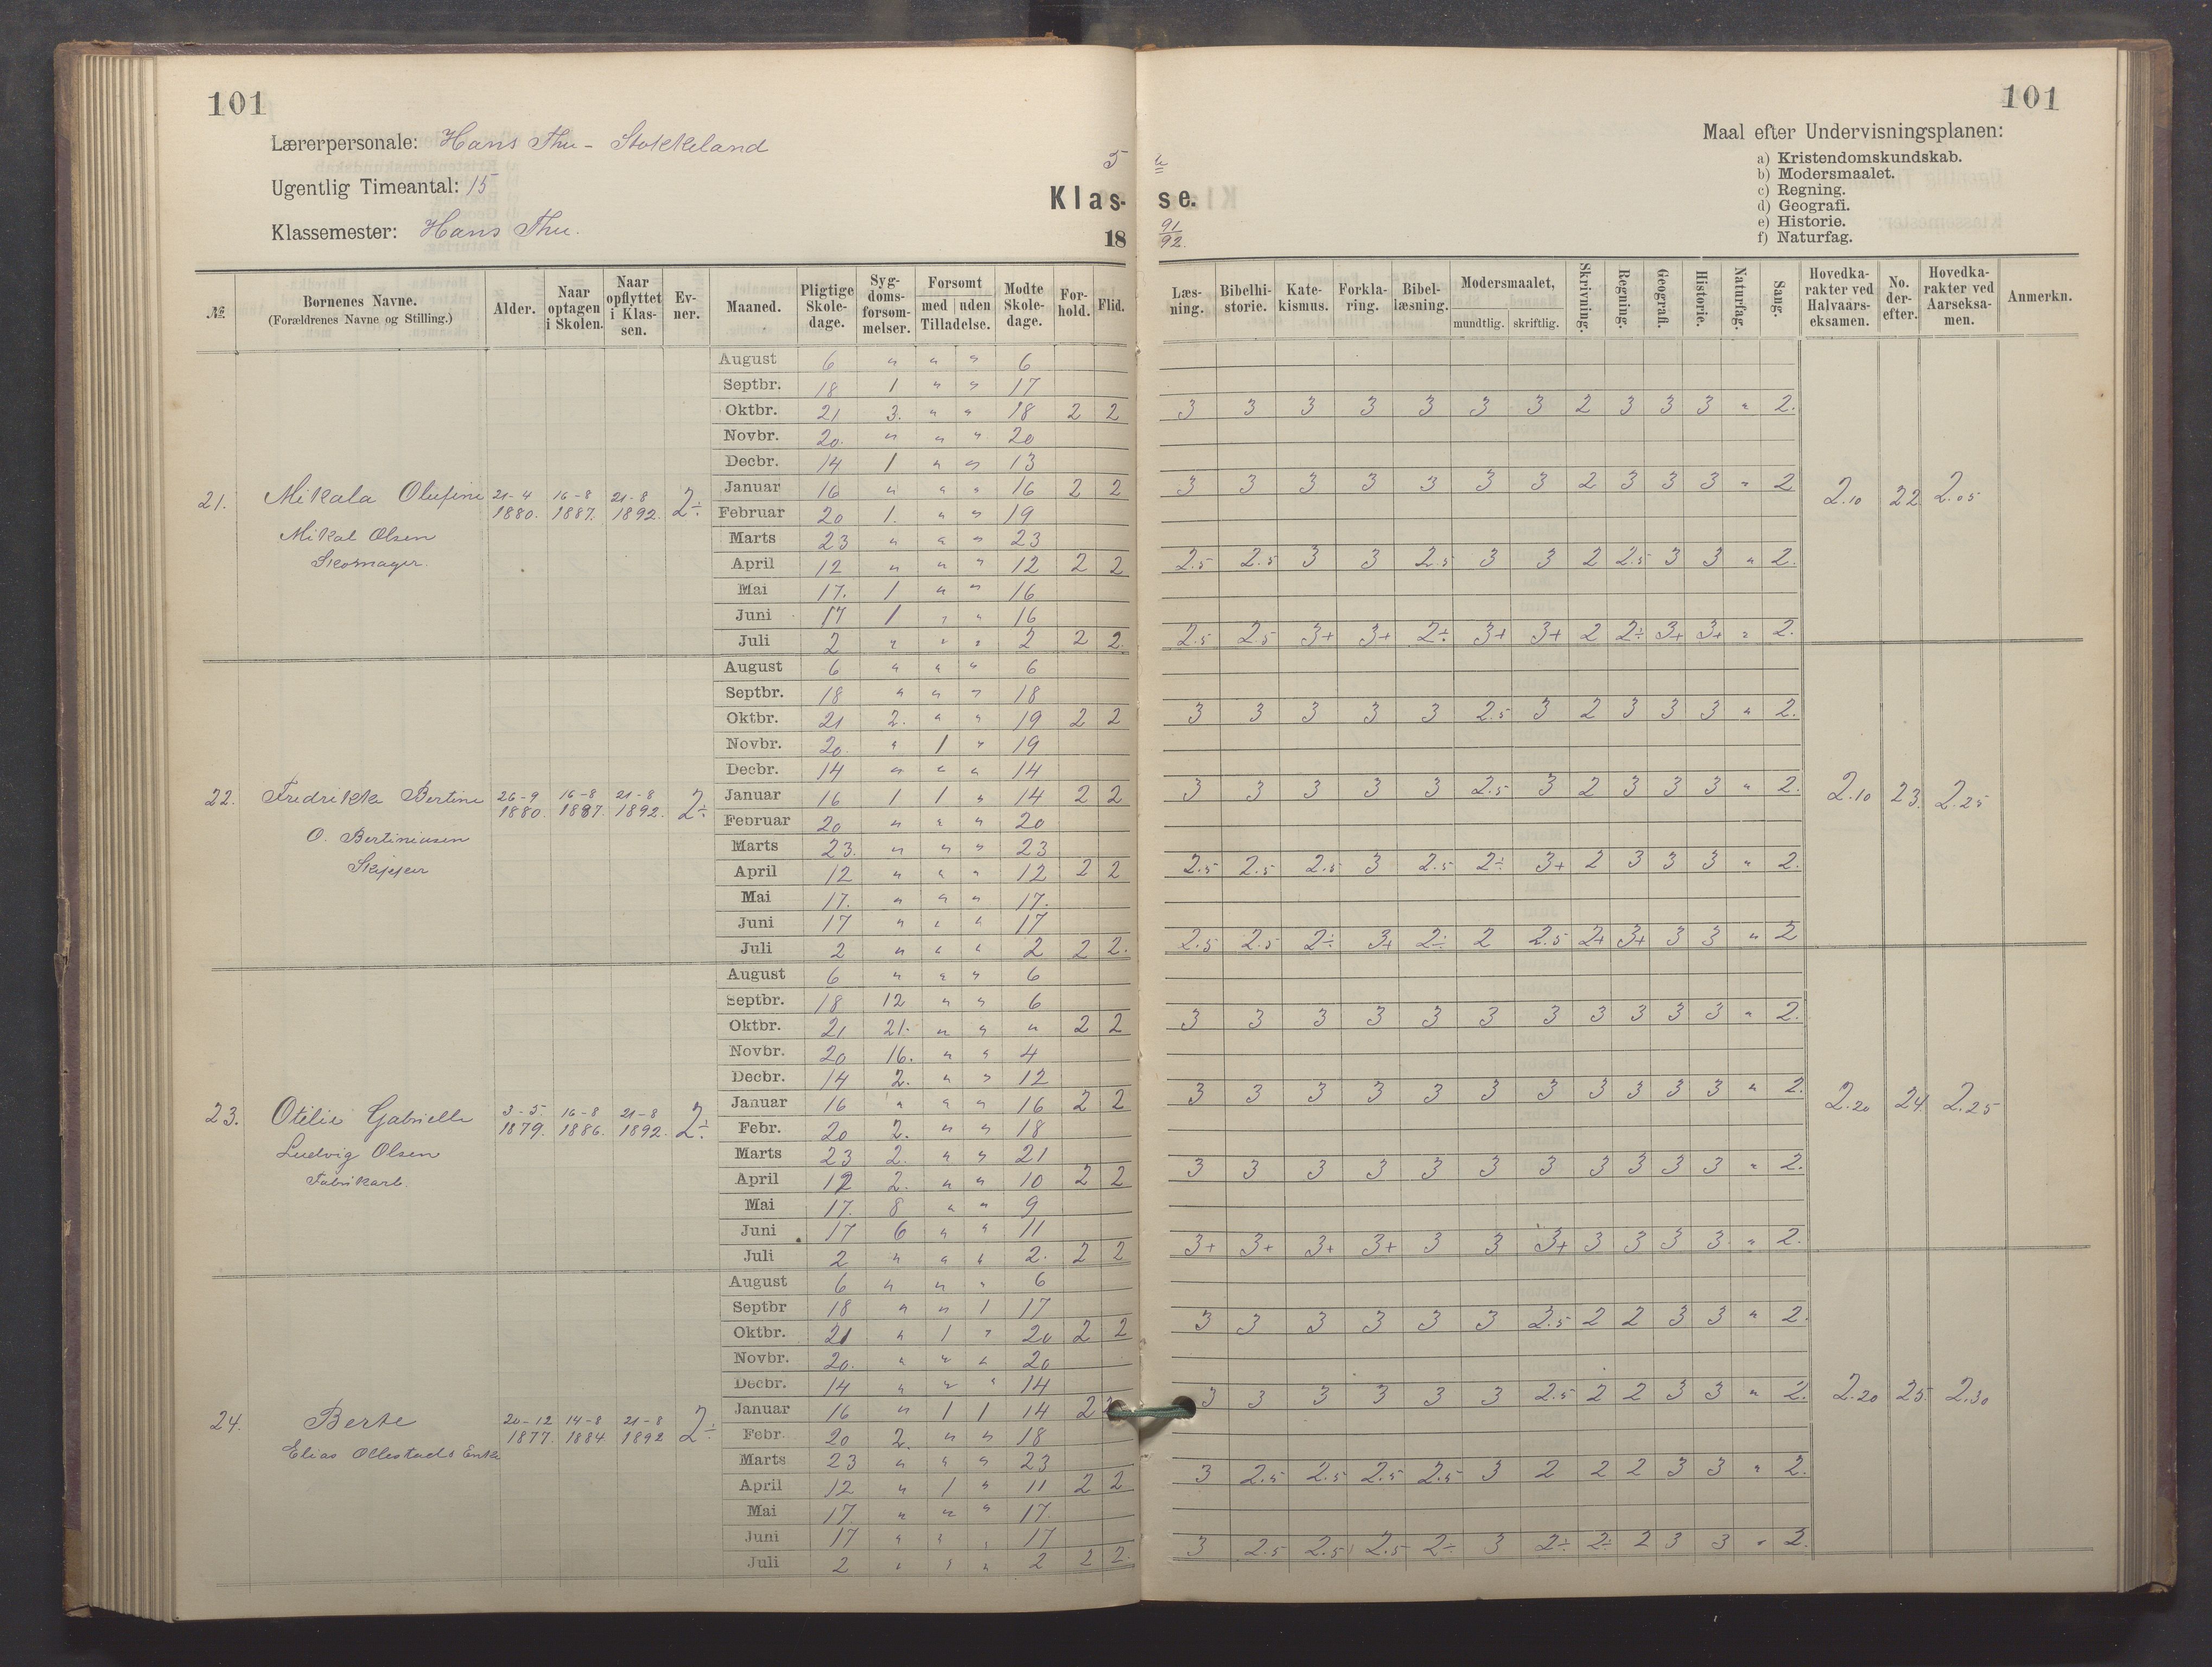 101
101
Lærerpersonale: Hans Thu - Stokkeland
Ugentlig Timeantal: 15
Klassemester: Hans Thu.
5 u
Klas- se.
18 91/92.
Maal efter Undervisningsplanen:
a) Kristendomskundskab.
b) Modersmaalet.
c) Regning.
d) Geografi.
e) Historie.
f) Naturfag.
№ Børnenes Navne. (Forældrenes Navne og Stilling.) Alder. Naar optagen i Skolen. Naar opflyttet i Klassen. Evner. Maaned. Pligtige Skoledage. Sygdomsforsømmelser. Forsømt med uden Tilladelse. Mødte Skoledage. Forhold. Flid. Læsning. Bibelhistorie. Katekismus. Forklaring. Bibellæsning. Modersmaalet, mundtlig. skriftlig. Skrivning. Regning. Geografi. Historie. Naturfag. Sang. Hovedkarakter ved Halvaarseksamen. No. derefter. Hovedkarakter ved Aarseksamen. Anmerkn.
21. Mikala Olufine 21-4 1880. 16-8 1887. 21-8 1892. 2÷
Mikal Olsen
Skomager.
August 6 " " " 6
Septbr. 18 1 " " 17
Oktbr. 21 3. " " 18 2 2 3 3 3 3 3 3 3 2 3 3 3 " 2.
Novbr. 20. " " " 20
Decbr. 14 1 " " 13
Januar 16 " " " 16 2 2 3 3 3 3 3 3 3 2 3 3 3 " 2 2.10 22 2.05
Februar 20 1. " " 19
Marts 23 " " " 23
April 12 " " " 12 2 2 2.5 2.5 3 3 2.5 3 3 2 2.5 3 3 " 2.
Mai 17. 1 " " 16
Juni 17 1 " " 16
Juli 2 " " " 2 2 2. 2.5 2.5 3+ 3+ 2÷ 3+ 3+ 2 2÷ 3+ 3+ " 2.
22. Fredrikke Bertine 26-9 1880. 16-8 1887. 21-8 1892. 2÷
O. Bertiniusen
Skipper
August 6 " " " 6
Septbr. 18 " " " 18
Oktbr. 21 2. " " 19 2 2 3 3 3 3 3 2.5 3 2 3 3 3 " 2.
Novbr. 20. " 1 " 19
Decbr. 14 " " " 14
Januar 16 1 1 " 14 2 2 3 3 3 3 3 2.5 3 2 3 3 3 " 2. 2.10 23. 2.25
Februar 20 " " " 20
Marts 23. " " " 23
April 12 " " " 12 2 2 2.5 2.5 2.5 3 2.5 2÷ 3+ 2 3 3 3 " 2.
Mai 17. " " " 17.
Juni 17 " " " 17
Juli 2 " " " 2 2 2. 2.5 2.5 2÷ 3+ 2÷ 2 2.5 2+ 3+ 3 3 " 2
23. Otilie Gabrielle 3-5 1879. 16-8 1886. 21-8 1892. 2÷
Ludvig Olsen
Fabrikarb.
August 6 " " " 6
Septbr. 18 12 " " 6
Oktbr. 21 21. " " " 2 2 3 3 3 3 3 3 3 3 3 3 3 " 2.
Novbr. 20 16. " " 4
Decbr. 14 2. " " 12
Januar 16 " " " 16 2 2 3 3 3 3 3 3 3 3 3 3 3 " 2. 2.20 24. 2.25
Febr. 20 2. " " 18
Marts 23 2. " " 21
April 12 2. " " 10 2 2 3 3 3 3 3 3 3 3 3 3 3 " 2.
Mai 17. 8 " " 9
Juni 17 6 " " 11
Juli 2 " " " 2. 2 2 3+ 3+ 3+ 3+ 3 3 3+ 3 3 3 3 " 2.
24. Berte 20-12 1877. 14-8 1884 21-8 1892 2÷
Elias Ollestads Enke
August 6 " " " 6
Septbr 18 " " 1 17
Oktbr. 21 " 1 " 20 2 2 3 3 3 3 3 3 2.5 2 2 3 3 " 2.
Novbr. 20. " " " 20
Decbr. 14 " " " 14
Januar 16 " 1 1 14 2 2 3 3 3 3 3 3 2.5 2 2 3 3 " 2. 2.20 25. 2.30
Febr. 20 2. " " 18
Marts 23 " " " 23
April 12 " 1 " 11 2 2 3 2.5 2.5 2.5 2.5 3 2 2 2 3 3 " 2.
Mai 17. " " " 17.
Juni 17 " " " 17
Juli 2 " " " 2 2 2. 3 2.5 2.5 2.5 2÷ 3 2÷ 2÷ 2 3 3 " 2.